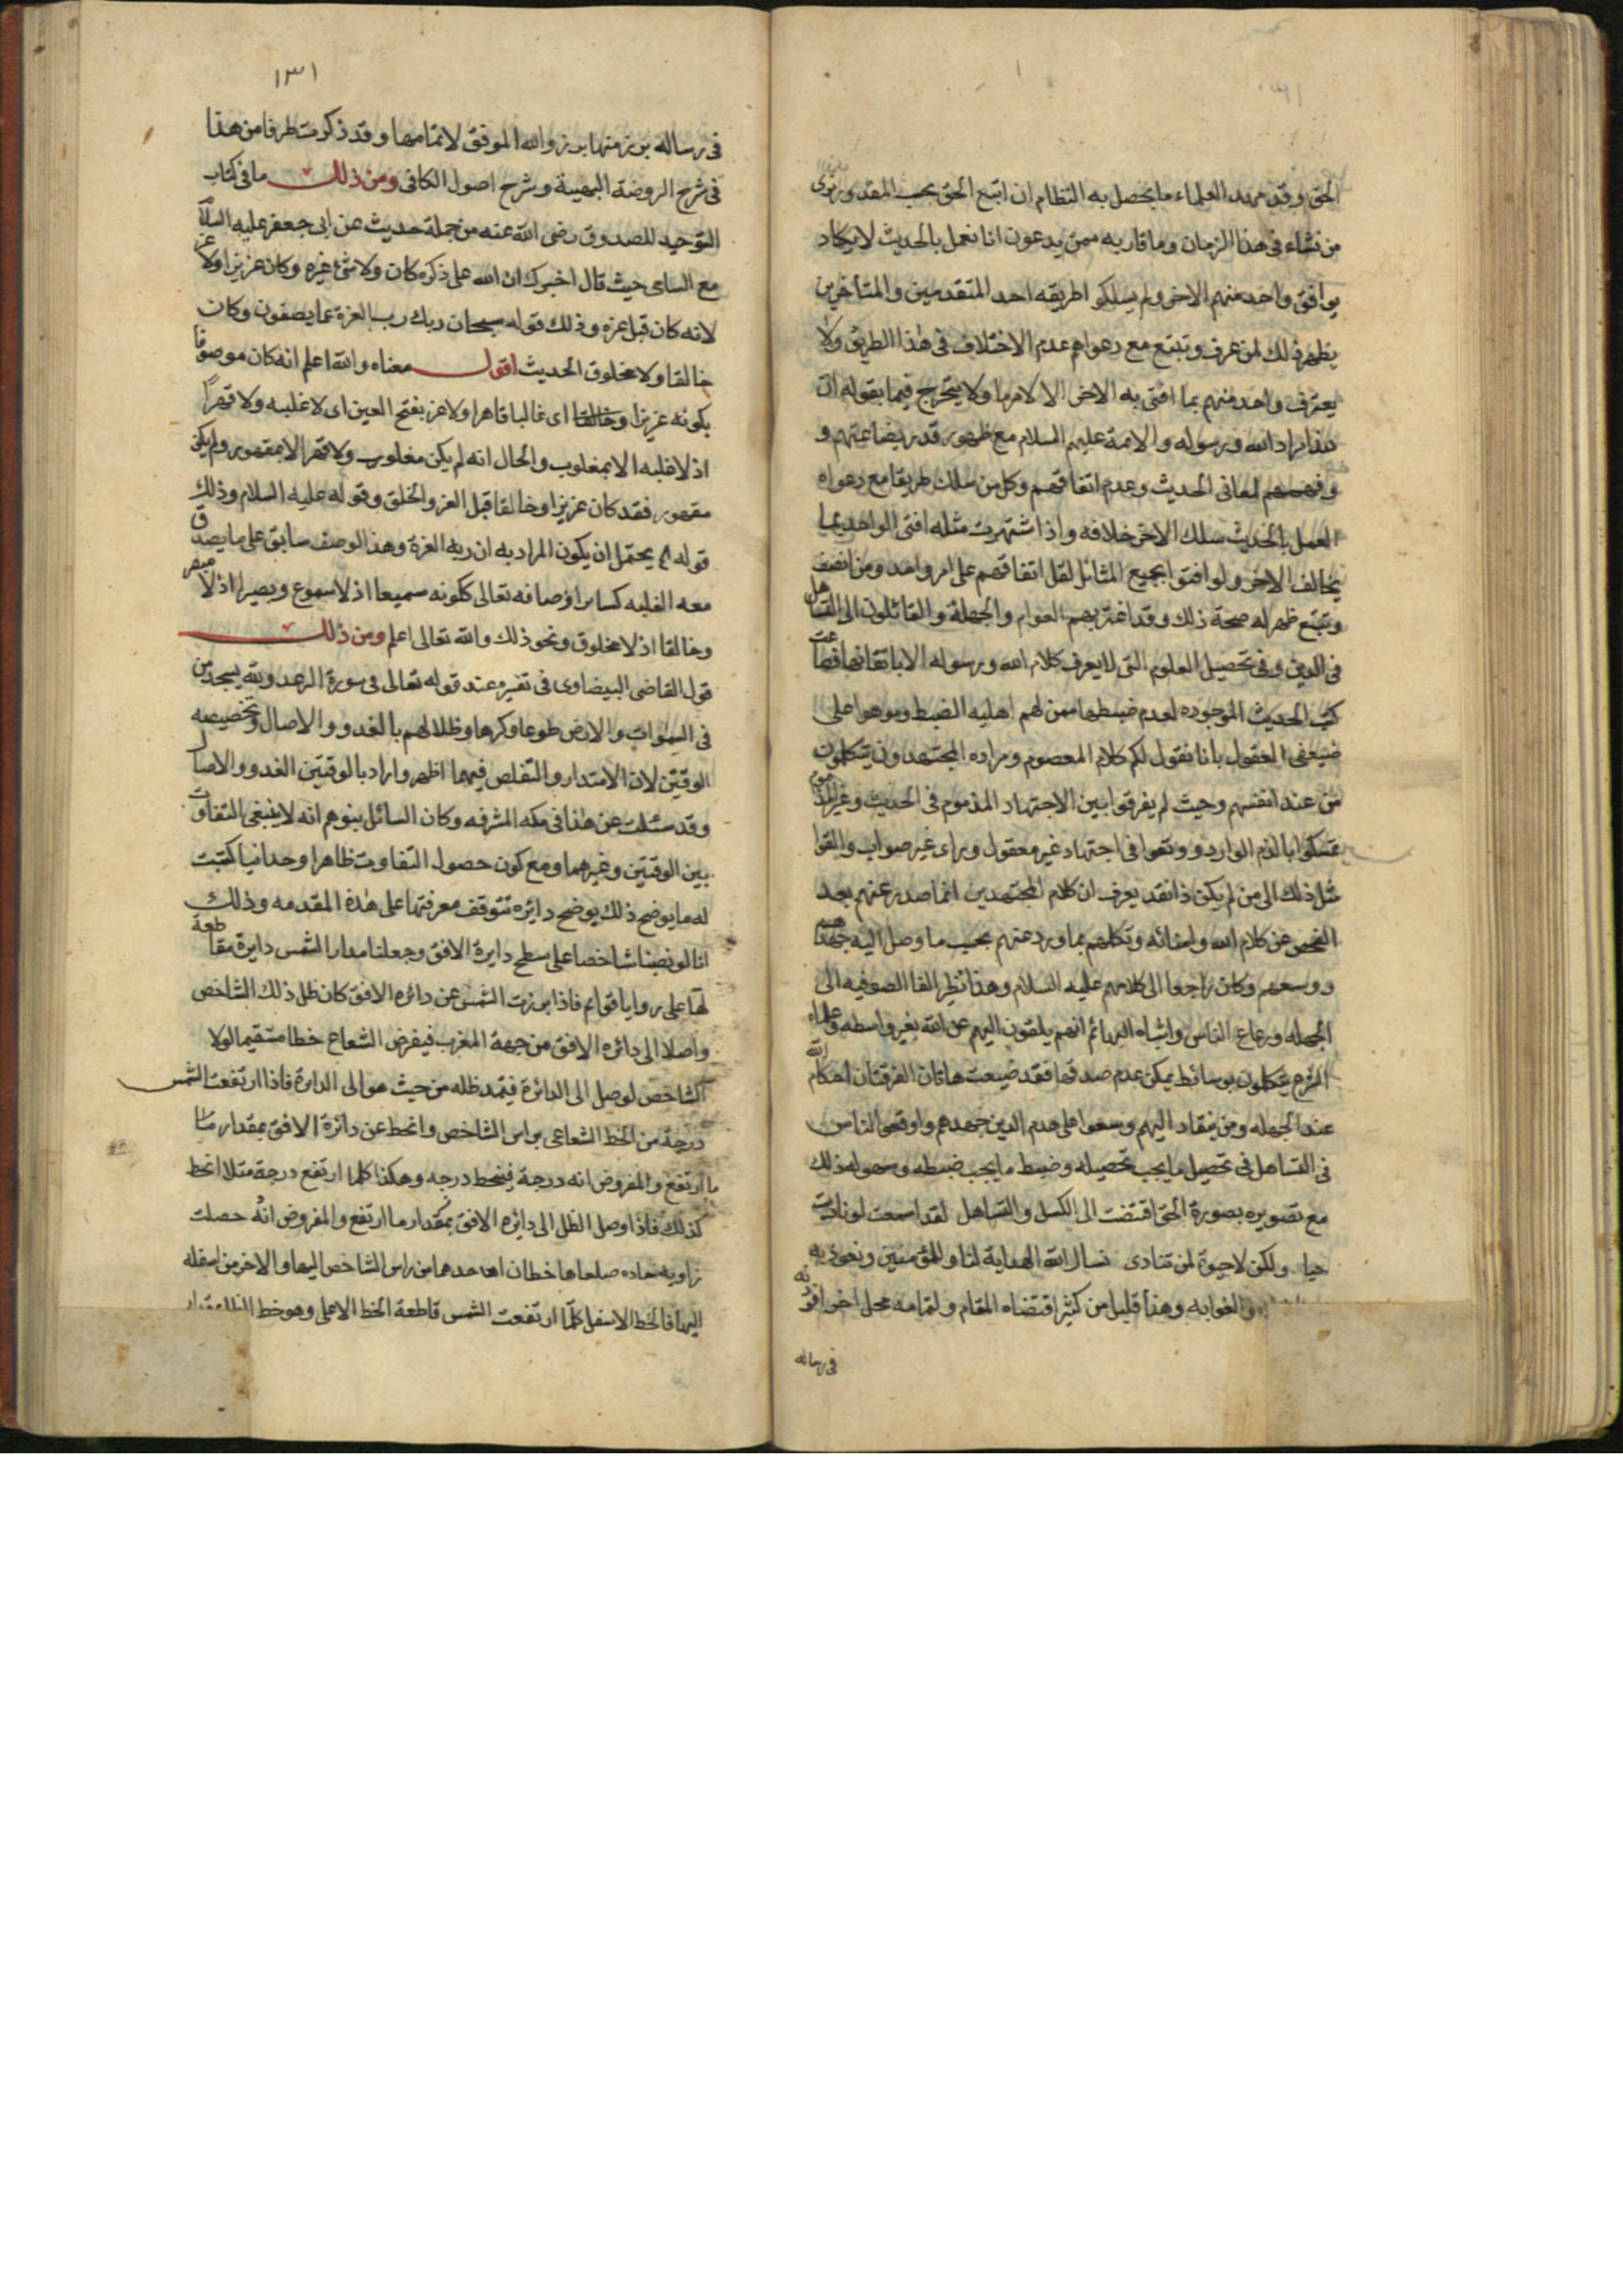 الحق وقد مهد العلماء ما يحصل به النظام ان اتبع الحق بحسب المقدور ونرى
من نشاء في هذا الزمان وما قاربه ممن يدعون انا نعمل بالحديث لا يكاد
يوافق واحد منهم الاخر ولم يسلكوا طريقه احد المتقدمين والمتأخرين
يظهر ذلك لمن عرف وتتبع مع دعواهم عدم الاختلاف في هذا الطريق ولا
يعترف واحد منهم بما افتى به الاخر الا لامر ما ولا يتحرج فيما يقوله ان
هذا مراد الله ورسوله والائمة عليهم السلام مع ظهور قدر بضاعتهم و
وفهمهم لمعاني الحديث وعدم اتفاقهم وكل من سلك طريقا مع دعواه
العمل بالحديث سلك الاخر خلافه واذا اشتهرت مثله افتى الواحد بما
يخالف الاخر ولو افتوا بجميع المسائل لقل اتفاقهم على امر واحد ومن انصف
وتتبع ظهر له صحة ذلك وقد اغتر بهم العوام والجهلة والقائلون الى التساهل
في الدين وفي تحصيل العلوم التي لا يعرف كلام الله ورسوله الا باتقانها فضاعت
كتب الحديث الموجوده لعدم ضبطها ممن لهم اهليه الضبط وموهوا على
ضعفى العقول بانا نقول لكم كلام المعصوم ومراده والمجتهدون يتكلمون
من عند انفسهم وحيث لم يفرقوا بين الاجتهاد المذموم في الحديث وغير المذموم
تمسكوا بالذم الوارد ووقعوا في اجتهاد غير معقول وراى غير صواب والقوا
مثل ذلك الى من لم يكن ذا نقد يعرف ان كلام المجتهدين انما صدر عنهم بعد
الفحص عن كلام الله وامنائه وتكلمهم بما ورد عنهم بحسب ما وصل اليه جهدهم
ووسعهم وكان راجعا الى كلامهم عليه السلام وهذا نظير القا الصوفيه الى
الجهله ورعاع الناس واشباه البهائم انهم يلقون اليهم عن الله بغير واسطه وعلماء
الشرع يتكلمون بوسائط يمكن عدم صدقها فقد ضيعت هاتان الفرقتان احكام الله
عند الجهله ومن ينقاد اليهم وسعوا على هدم الدين جهدهم واوقعوا الناس
في التساهل في تحصيل ما يجب تحصيله وضبط ما يجب ضبطه وسهوله ذلك
مع تصويره بصورة الحق اقتضت الى الكسل والتساهل لقد اسمعت لو ناديت
حيا ولكن لا حيوة لمن تنادى نسال الله الهداية لنا وللمؤمنين ونعوذ به
والغوايه وهذا قليل من كثير اقتضاه المقام ولتمامه محل اخر افردته
في رساله
١٣١
في رساله بوزمنها بوز والله الموفق لاتمامها وقد ذكرت طرفا من هذا
في شرح الروضة البهية وشرح اصول الكافى ومن ذلك ما في كتاب
التوحيد للصدوق رضى الله عنه من جملة حديث عن ابى جعفر عليه السلام
مع السامى حيث قال اخبرك ان الله على ذكره كان ولا شئ غيره وكان عزيزا ولا عز
لانه كان قبل عزه وذلك قوله سبحان ربك رب العزة عما يصفون وكان
خالقا ولا مخلوق الحديث اقول معناه والله اعلم انه كان موصوفا
بكونه عزيزا وخالقا اى غالبا قاهرا ولا عز بفتح العين اى لا غلبه ولا قهرا
اذ لا غلبه الا بمغلوب والحال انه لم يكن مغلوب ولا قهر الا بمقهور ولم يكن
مقهور فقد كان عزيزا وخالقا قبل العز والخلق وقوله عليه السلام وذلك
قوله يحتمل ان يكون المراد به ان ربه العزة وهذا الوصف سابق على ما يصدق
معه الغلبه كسائر اوصافه تعالى ككونه سميعا اذ لا مسموع وبصيرا اذ لا مبصر
وخالقا اذ لا مخلوق ونحو ذلك والله تعالى اعلم ومن ذلك
قول القاضى البيضاوى في تفسيره عند قوله تعالى في سورة الرعد ولله يسجد من
في السموات والارض طوعا وكرها وظلالهم بالغدو والاصال وتخصيص
الوقتين لان الامتداد والتقلص فيهما اظهر واراد بالوقتين الغدو والاصال
وقد سئلت عن هذا في مكه المشرفه وكان السائل يتوهم انه لا ينبغى التفاوت
بين الوقتين وغيرهما ومع كون حصول التفاوت ظاهرا وحدانيا كتبت
له ما يوضح ذلك بوضح دايره تتوقف معرفتها على هذه المقدمه وذلك
انا لو نصبنا شاخصا على سطح دايرة الافق وجعلنا مدار الشمس دايرة مقاطعة
لها على زوايا قوائم فاذا برزت الشمس عن دائره الافق كان ظل ذلك الشاخص
واصلا الى دائره الافق من جهة المغرب فيفرض الشعاع خطا مستقيما لولا
الشاخص لوصل الى الدائرة فيتمد ظله من حيث هو الى الدائرة فاذا ارتفعت الشمس
درجة من الخط الشعاعى براس الشاخص وانحط عن دائرة الافق بمقدار ما
ما ارتفع والمفروض انه درجة فينحط درجه وهكذا كلما ارتفع درجة مثلا انحط
كذلك فاذا وصل الظل الى دائره الافق بمقدار ما ارتفع والمفروض انه حصلت
زاويه حاده ضلعاها خطان احدهما من راس الشاخص اليها والاخر من اسفله
اليها فالخط الاسفل كلما ارتفعت الشمس قاطعة الخط الاعلى وهو خط